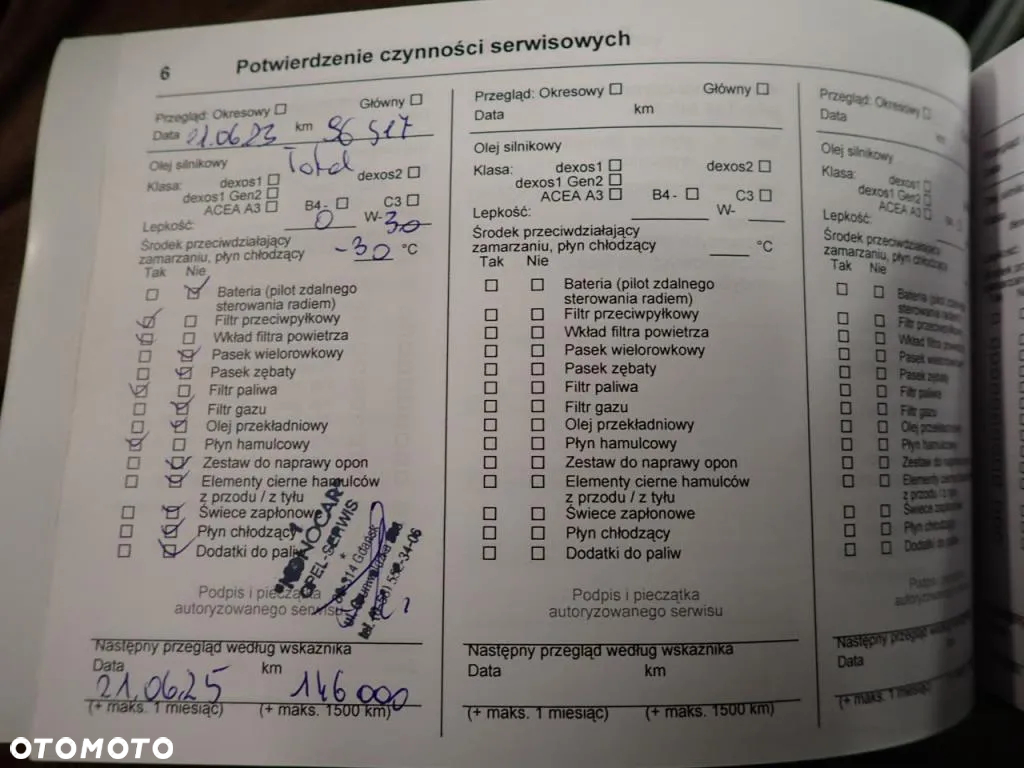 6 Potwierdzenie czynności serwisowych
Przegląd: Okresowy Główny
Data 21.06.23 km 96 517
Olej silnikowy Total
Klasa: dexos1 dexos2
dexos1 Gen2
ACEA A3 B4- C3
Lepkość: 0 W- 30
Środek przeciwdziałający
zamarzaniu, płyn chłodzący -30 °C
Tak Nie
Bateria (pilot zdalnego
sterowania radiem)
Filtr przeciwpyłkowy
Wkład filtra powietrza
Pasek wielorowkowy
Pasek zębaty
Filtr paliwa
Filtr gazu
Olej przekładniowy
Płyn hamulcowy
Zestaw do naprawy opon
Elementy cierne hamulców
z przodu / z tyłu
Świece zapłonowe
Płyn chłodzący
Dodatki do paliw
OPEL-SERWIS
Gdańsk
Podpis i pieczątka
autoryzowanego serwisu
Następny przegląd według wskaźnika
Data km
21.06.25 146 000
(+ maks. 1 miesiąc) (+ maks. 1500 km)
Przegląd: Okresowy Główny
Data km
Olej silnikowy
Klasa: dexos1 dexos2
dexos1 Gen2
ACEA A3 B4- C3
Lepkość: W-
Środek przeciwdziałający
zamarzaniu, płyn chłodzący °C
Tak Nie
Bateria (pilot zdalnego
sterowania radiem)
Filtr przeciwpyłkowy
Wkład filtra powietrza
Pasek wielorowkowy
Pasek zębaty
Filtr paliwa
Filtr gazu
Olej przekładniowy
Płyn hamulcowy
Zestaw do naprawy opon
Elementy cierne hamulców
z przodu / z tyłu
Świece zapłonowe
Płyn chłodzący
Dodatki do paliw
Podpis i pieczątka
autoryzowanego serwisu
Następny przegląd według wskaźnika
Data km
(+ maks. 1 miesiąc) (+ maks. 1500 km)
Przegląd: Okresowy
Data km
Olej silnikowy
Klasa: dexos1
dexos1 Gen2
ACEA A3
Lepkość:
Środek przeciwdziałający
zamarzaniu, płyn chłodzący
Tak Nie
Bateria (pilot zdalnego
sterowania radiem)
Filtr przeciwpyłkowy
Wkład filtra powietrza
Pasek wielorowkowy
Pasek zębaty
Filtr paliwa
Filtr gazu
Olej przekładniowy
Płyn hamulcowy
Zestaw do naprawy
Elementy cierne
z przodu / z tyłu
Świece zapłonowe
Płyn chłodzący
Dodatki do paliw
Podpis i
autoryzowanego
Następny przegląd według
Data km
(+ maks. 1 miesiąc)
OTOMOTO